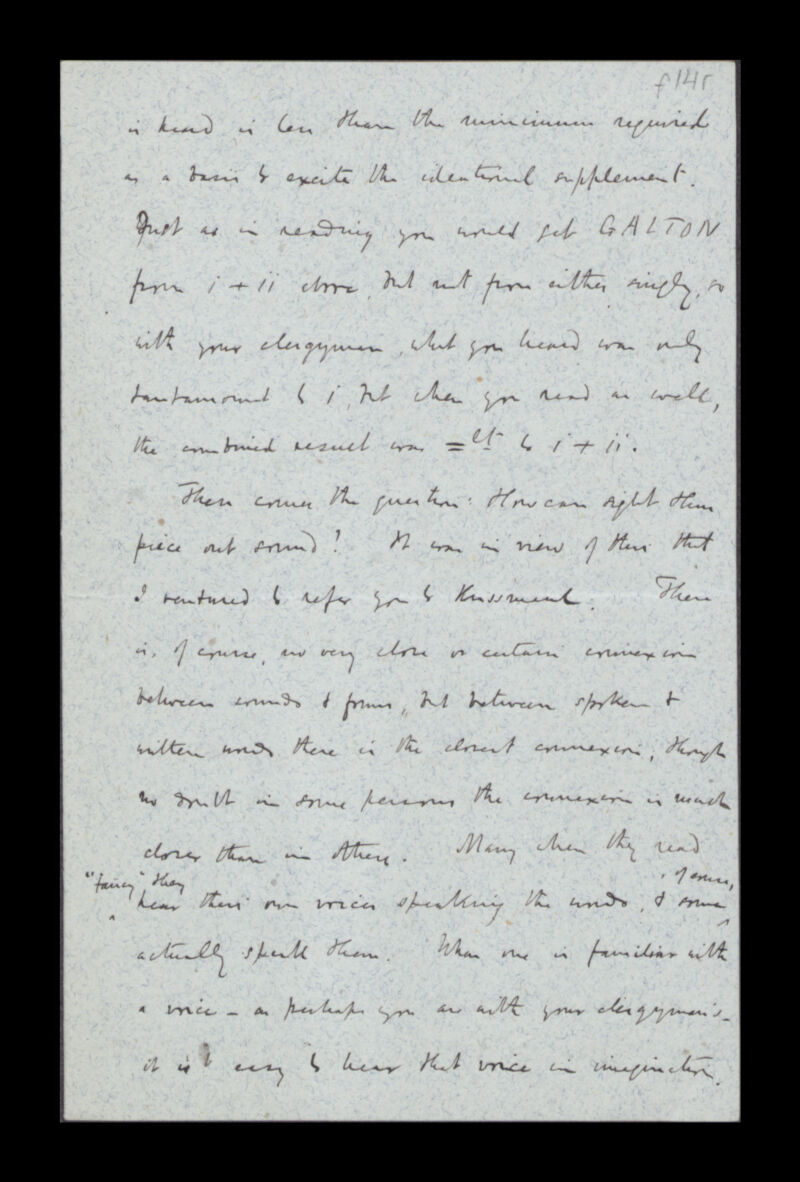 f14r
is heard is less than the minimum required
as a basis to excite the ideational supplement.
Just as in reading you would get GALTON
from i + ii above, but not from either singly, so
with your clergyman, what you heard was only
tantamount to i, but when you read as well,
the combined result was =lt to i + ii.
Then comes the question: How can sight thus
piece out sound? It was in view of this that
I ventured to refer you to
There
is, of course, no very close or certain connexion
between sounds & forms, but between spoken &
written words there is the closest connexion, though
no doubt in some persons the connexion is much
closer than in others. Many when they read
"fancy" they
, of course,
hear their own voices speaking the words, & some
actually speak them. When one is familiar with
a voice – as perhaps you are with your clergyman's –
it is easy to hear that voice in imagination.